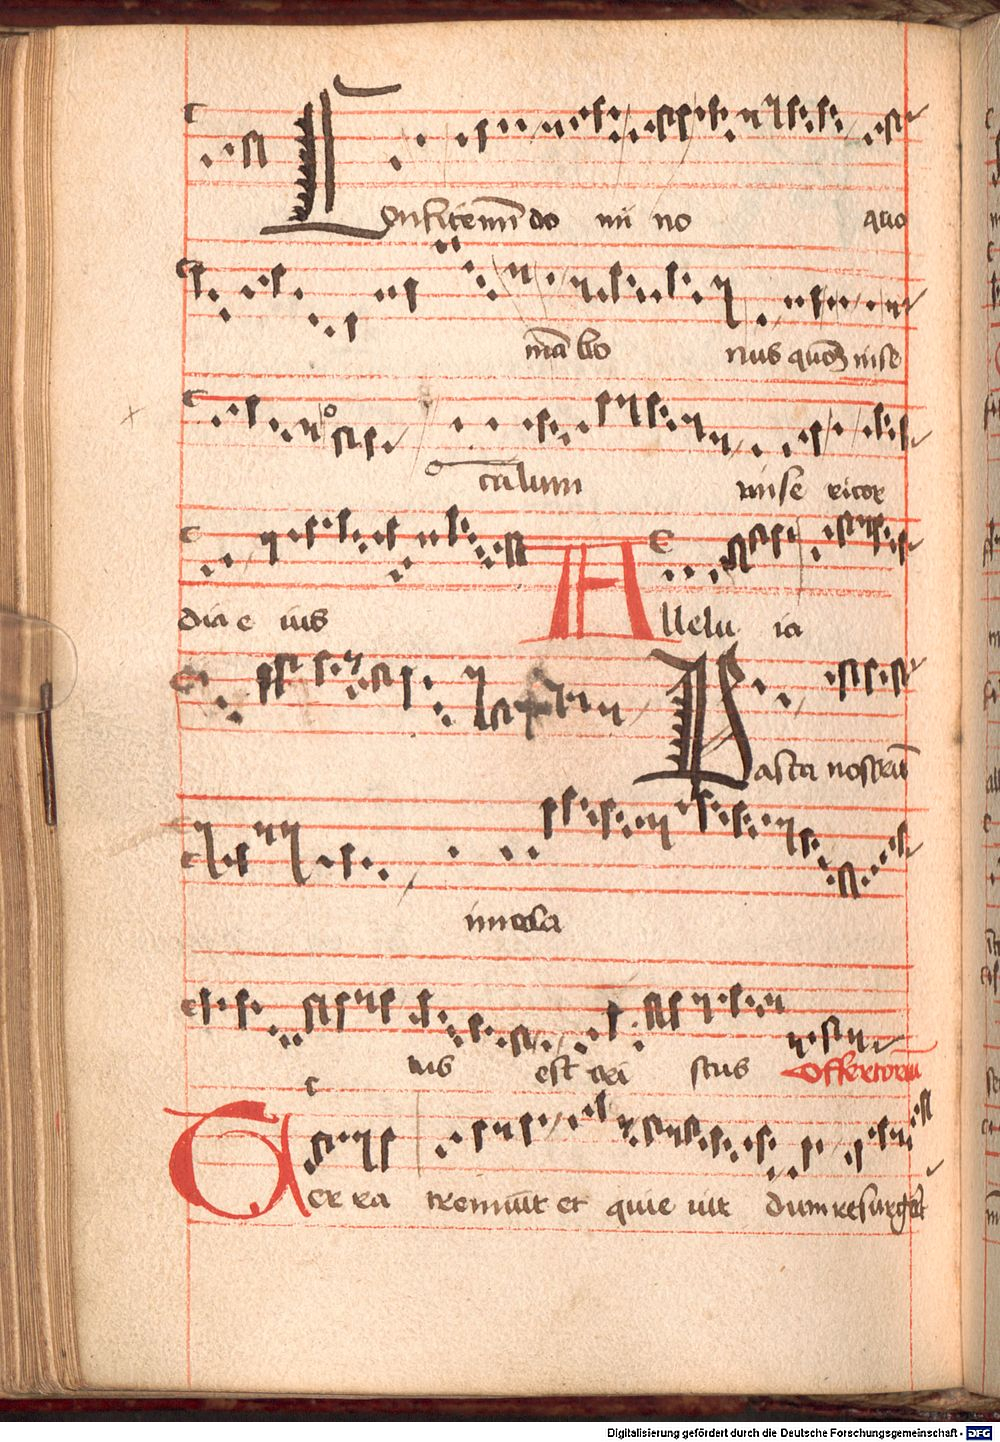 Confitemi͂ do mi no quo
mā bo nus quoniā mise
in se culum mise ricor
dia e ius Allelu ia
Pasca nostrū
immola
tus est cri stus Offertoriū
Terra tremuit et quie uit dum resurgeret
Digitalisierung gefördert durch die Deutsche Forschungsgemeinschaft - DFG